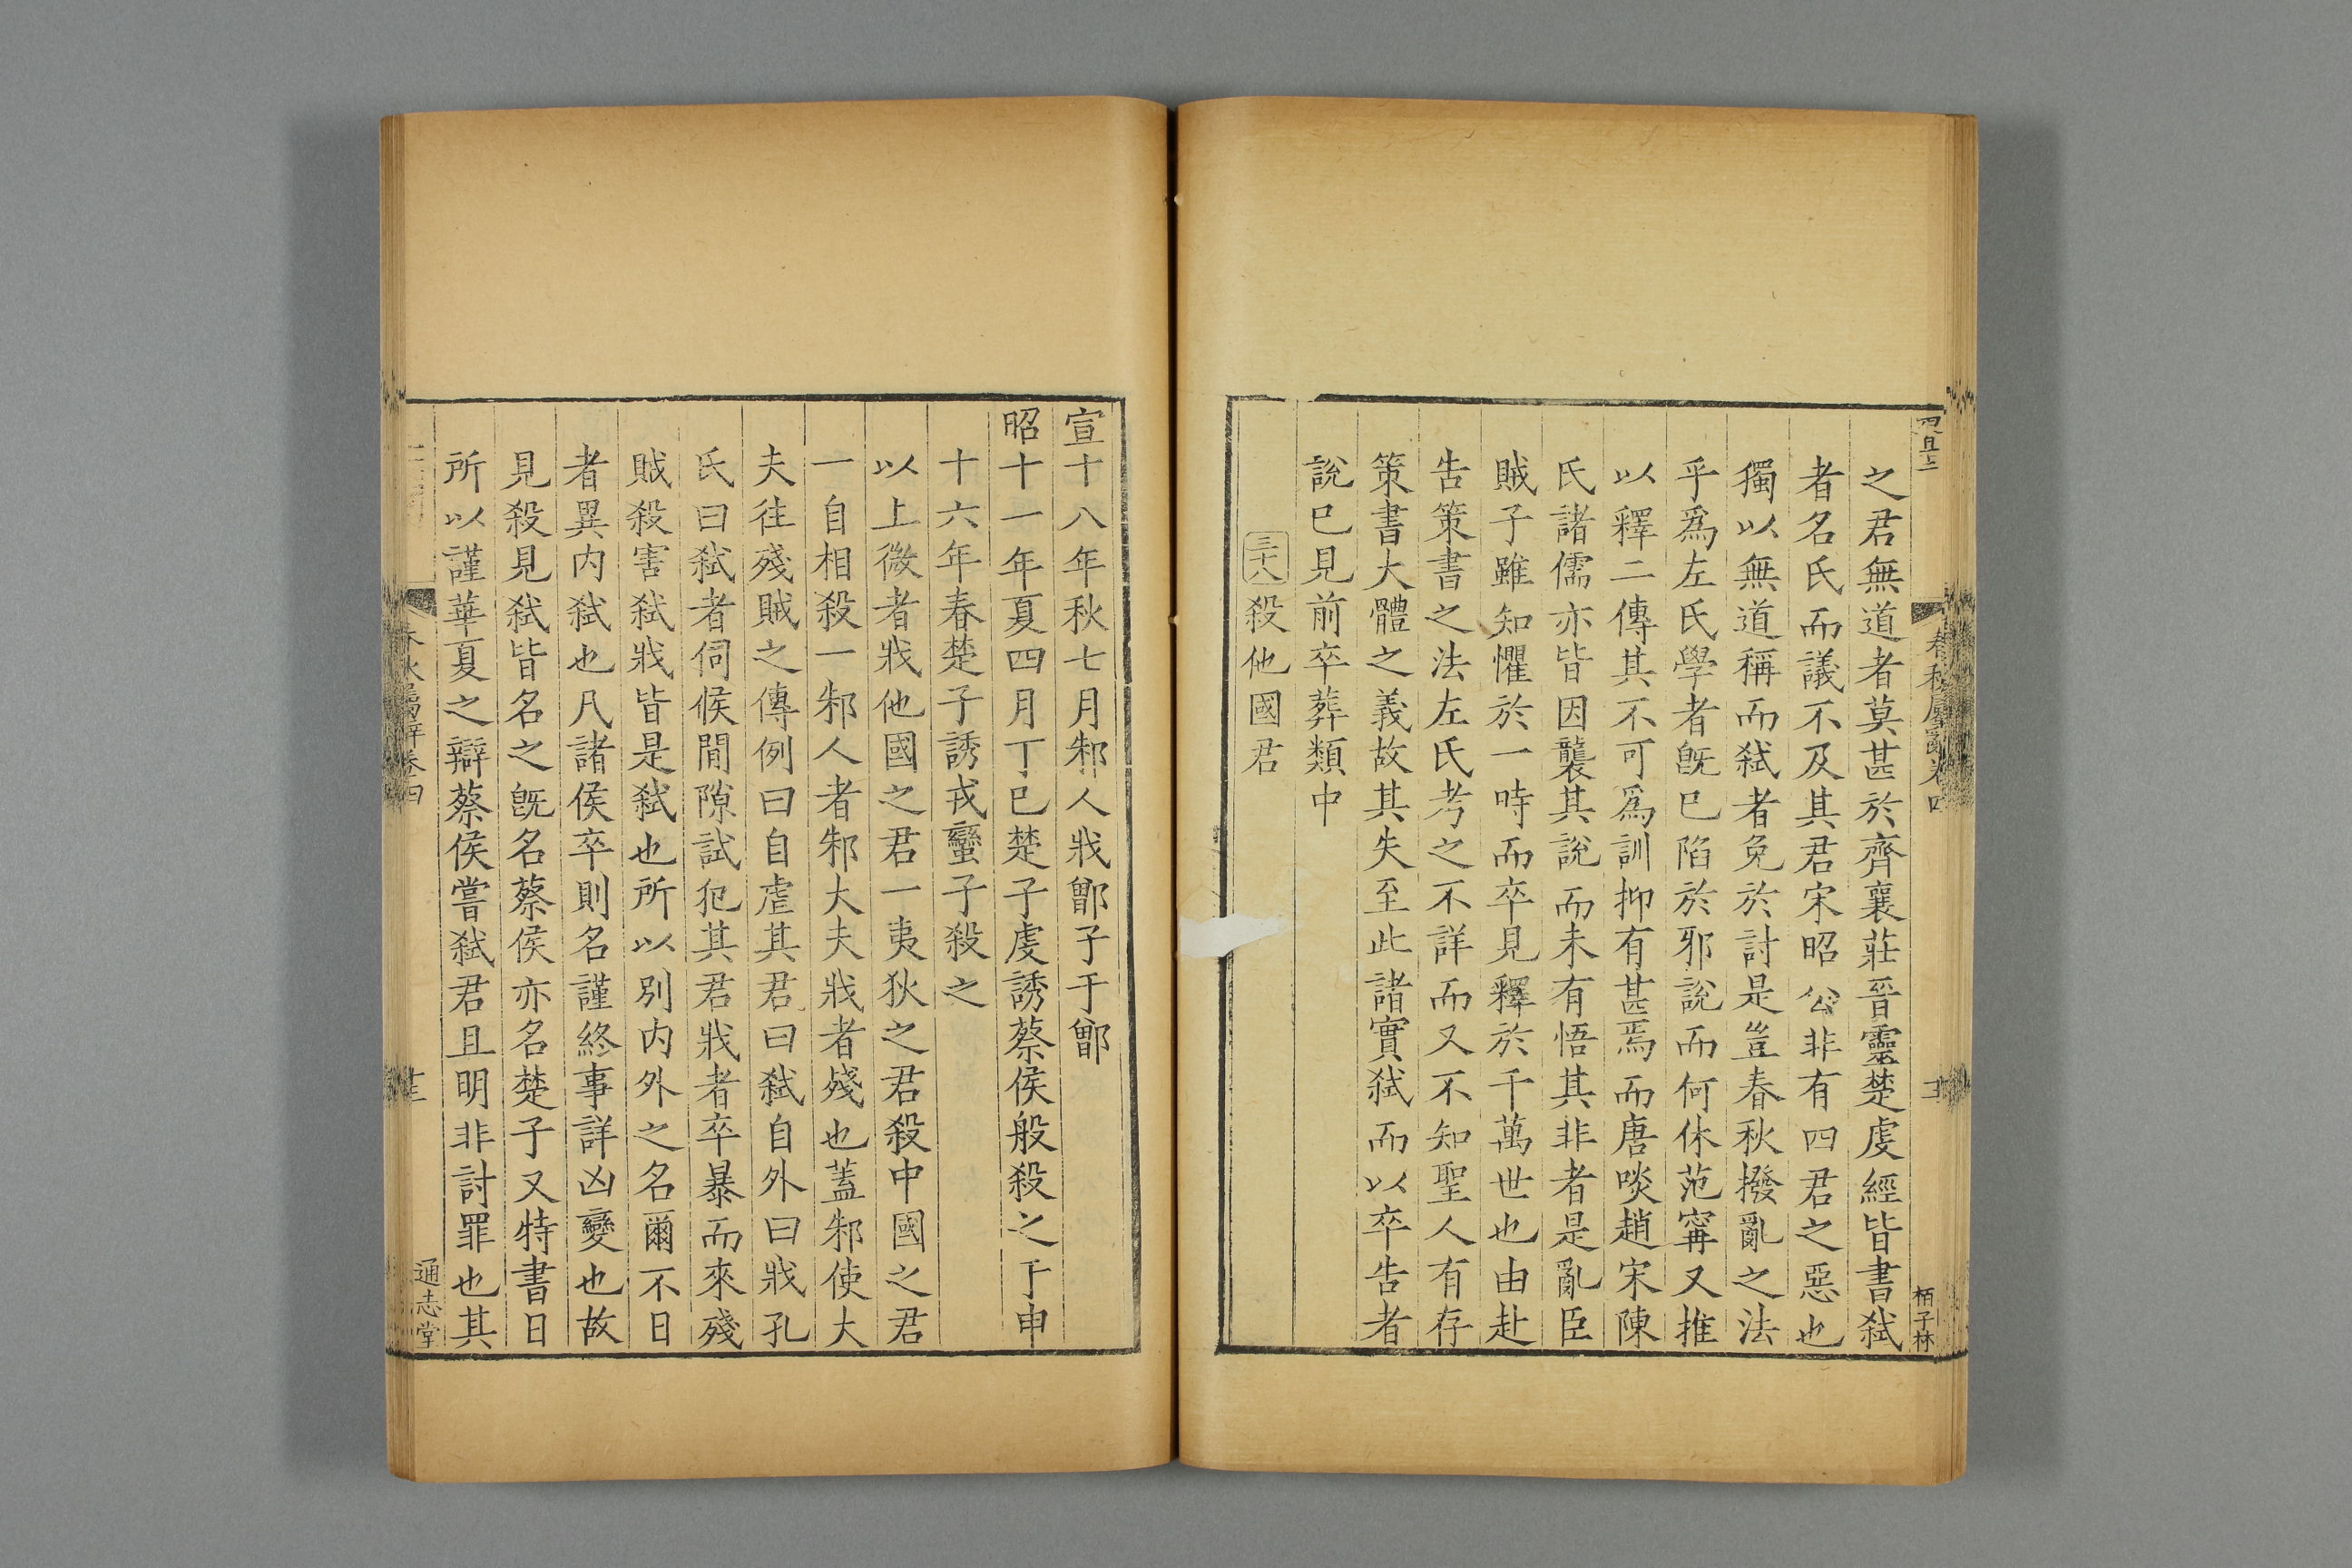 之君無道者莫甚於齊襄莊晉靈楚虔經皆書弑
者名氏而議不及其君宋昭公非有四君之惡也
獨以無道稱而弑者免於討是豈春秋撥亂之法
乎爲左氏學者旣已陷於邪說而何休范甯又推
以釋二傳其不可爲訓抑有甚焉而唐啖趙宋陳
氏諸儒亦皆因襲其說而未有悟其非者是亂臣
賊子雖知懼於一時而卒見釋於千萬世也由赴
告策書之法左氏考之不詳而又不知聖人有存
策書大體之義故其失至此諸實弑而以卒告者
說已見前卒葬類中
三十八殺他國君
宣十八年秋七月邾人戕鄫子于鄫
昭十一年夏四月丁巳楚子虔誘蔡侯般殺之于申
十六年春楚子誘戎蠻子殺之
以上微者戕他國之君一夷狄之君殺中國之君
一自相殺一邾人者邾大夫戕者殘也蓋邾使大
夫往殘賊之傳例曰自虐其君曰弑自外曰戕孔
氏曰弑者伺候間隙試犯其君戕者卒暴而來殘
賊殺害弑戕皆是弑也所以別內外之名爾不日
者異內弑也凡諸侯卒則名謹終事詳凶變也故
見殺見弑皆名之旣名蔡侯亦名楚子又特書日
所以謹華夏之辯蔡侯嘗弑君且明非討罪也其
春秋屬辭卷四
通志堂
栢子林